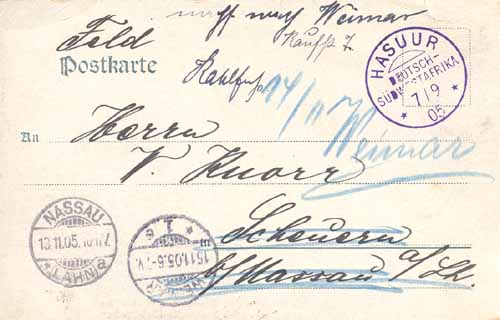 nach Weimar
Feld
Postkarte
HASUUR
DEUTSCH-
SÜDWESTAFRIKA
7/9
05
14/11
An
Herrn
V. Knorr
Weimar
Scheuern
b/Nassau a/Lh.
NASSAU
13.11.05.
* LAHN a
15.11.05.6-7.V.